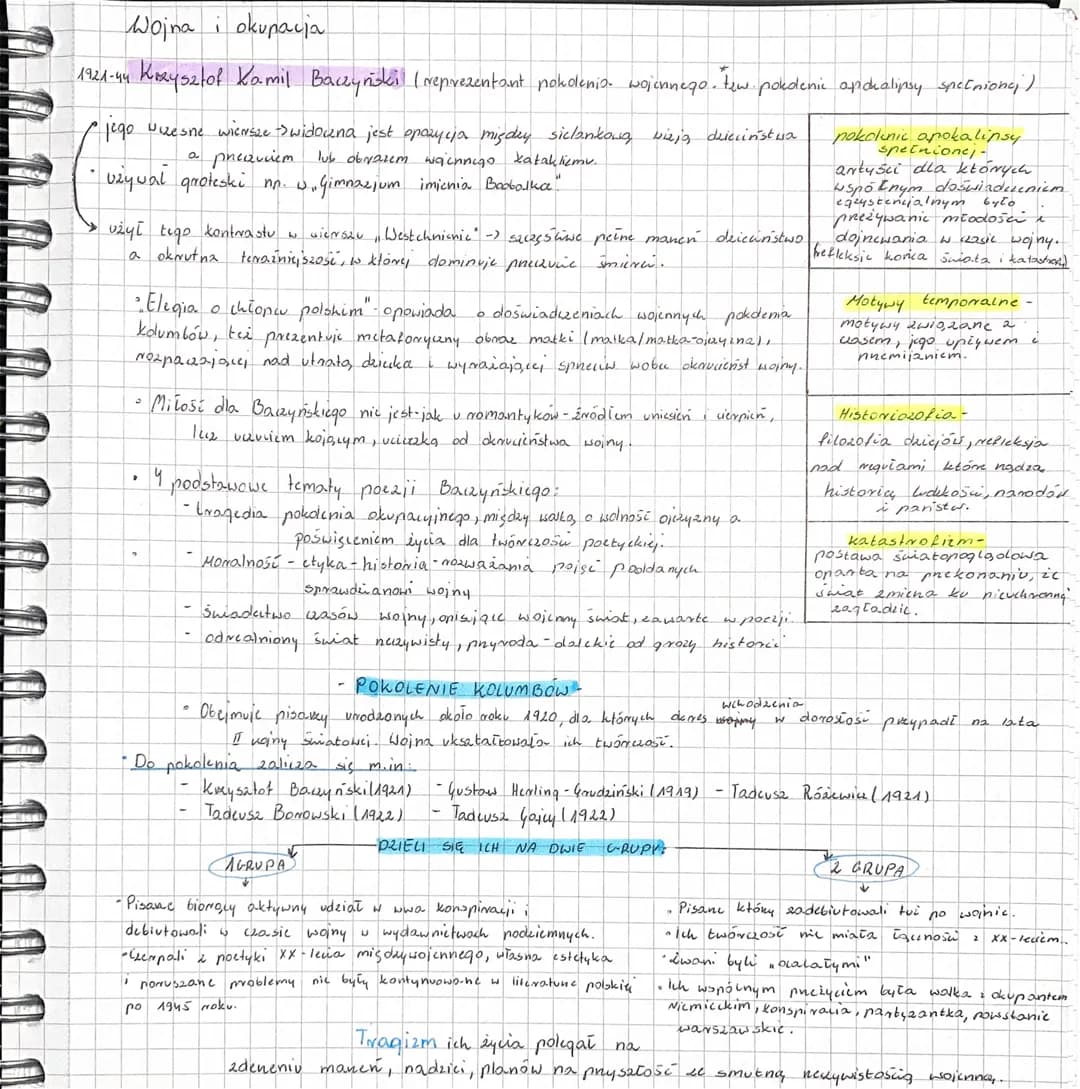 Wojna i okupacja
1921-44 Krzysztof Kamil Baczyński (reprezentant pokolenia wojennego. tzw. pokolenie apokalipsy spełnionej)
jego wczesne wiersze → widoczna jest opozycja między sielankową wizją dzieciństwa
a przeczuciem lub obrazem wojennego kataklizmu.
• używał groteski np. w „Gimnazjum imienia Boobalka"
użył tego kontrastu w wierszu „Westchnienie" → szczęśliwe pełne marzeń dzieciństwo
a okrutna teraźniejszość, w której dominuje przeczucie śmierci.
• „Elegia o chłopcu polskim" - opowiada o doświadczeniach wojennych pokolenia
kolumbów, też prezentuje metaforyczny obraz matki (matka/matka-ojczyzna),
rozpaczającej nad utratą dziecka i wyrażającej sprzeciw wobec okrucieństw wojny.
• Miłość dla Baczyńskiego nie jest - jak u romantyków - źródłem uniesień i cierpień,
lecz uczuciem kojącym, ucieczką od okrucieństwa wojny.
• 4 podstawowe tematy poezji Baczyńskiego:
- tragedia pokolenia okupacyjnego, między walką o wolność ojczyzny a
poświęceniem życia dla twórczości poetyckiej.
- Moralność - etyka - historia - rozważania pojęć poddanych
sprawdzianowi wojny
- świadectwo czasów wojny, opisujące wojenny świat, zawarte w poezji.
- odrealniony świat rzeczywisty, przyroda - dalekie od grozy historii
pokolenie apokalipsy
spełnionej -
artyści dla których
wspólnym doświadczeniem
egzystencjalnym było
przeżywanie młodości i
dojrzewania w czasie wojny.
(refleksje końca świata i katastrof)
Motywy temporalne -
motywy związane z
czasem, jego upływem i
przemijaniem.
Historiozofia -
filozofia dziejów, refleksja
nad regułami które rządzą
historią ludzkości, narodów
i państw.
katastrofizm -
postawa światopoglądowa
oparta na przekonaniu, że
świat zmierza ku nieuchronnej
zagładzie.
- POKOLENIE KOLUMBÓW -
• Obejmuje pisarzy urodzonych około roku 1920, dla których okres wchodzenia w dorosłość przypadł na lata
II wojny światowej. Wojna ukształtowała ich twórczość.
• Do pokolenia zalicza się m.in:
- Krzysztof Baczyński (1921) - Gustaw Herling-Grudziński (1919) - Tadeusz Różewicz (1921)
- Tadeusz Borowski (1922) - Tadeusz Gajcy (1922)
DZIELI SIĘ ICH NA DWIE GRUPY:
1 GRUPA
2 GRUPA
- Pisarze biorący aktywny udział w konspiracji i
debiutowali w czasie wojny w wydawnictwach podziemnych.
- Czerpali z poetyki XX-lecia międzywojennego, własna estetyka
i poruszane problemy nie były kontynuowane w literaturze polskiej
po 1945 roku.
• Pisarze którzy zadebiutowali tuż po wojnie.
• Ich twórczość nie miała łączności z XX-leciem..
• zwani byli „ocalałymi"
• Ich wspólnym przeżyciem była walka z okupantem
Niemieckim, konspiracja, partyzantka, powstanie
warszawskie.
Tragizm ich życia polegał na
zderzeniu marzeń, nadziei, planów na przyszłość ze smutną rzeczywistością wojenną..